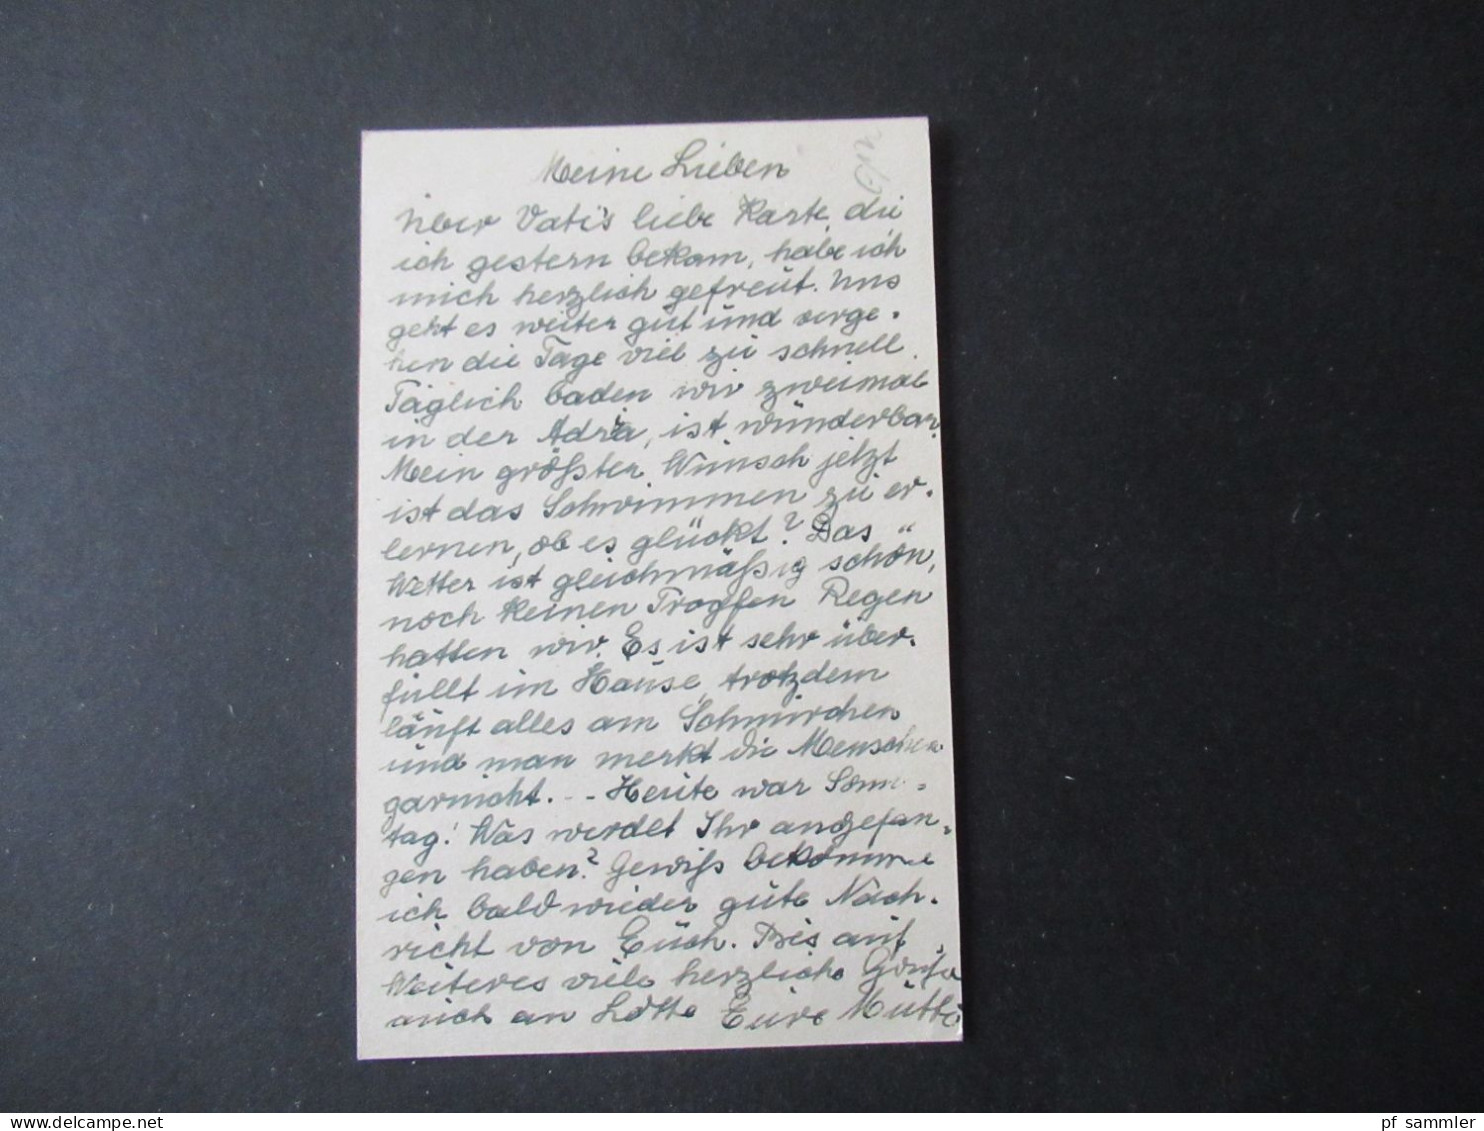 Meine Lieben
Über Vati's liebe Karte, die
ich gestern bekam, habe ich
mich herzlich gefreut. Uns
geht es weiter gut und verge-
hen die Tage viel zu schnell.
Täglich baden wir zweimal
in der Adria, ist wunderbar.
Mein größter Wunsch jetzt
ist das Schwimmen zu er-
lernen, ob es glückt? Das
Wetter ist gleichmäßig schön,
noch keinen Tropfen Regen
hatten wir. Es ist sehr über-
füllt im Hause, trotzdem
läuft alles am Schnürchen
und man merkt die Menschen
garnicht. - - Heute war Sonn-
tag! Was werdet Ihr angefan-
gen haben? Gewiß bekomme
ich bald wieder gute Nach-
richt von Euch. Bis auf
Weiteres viele herzliche Grüße
auch an Lotte Eure Mutti
www.delcampe.net
pf_sammler